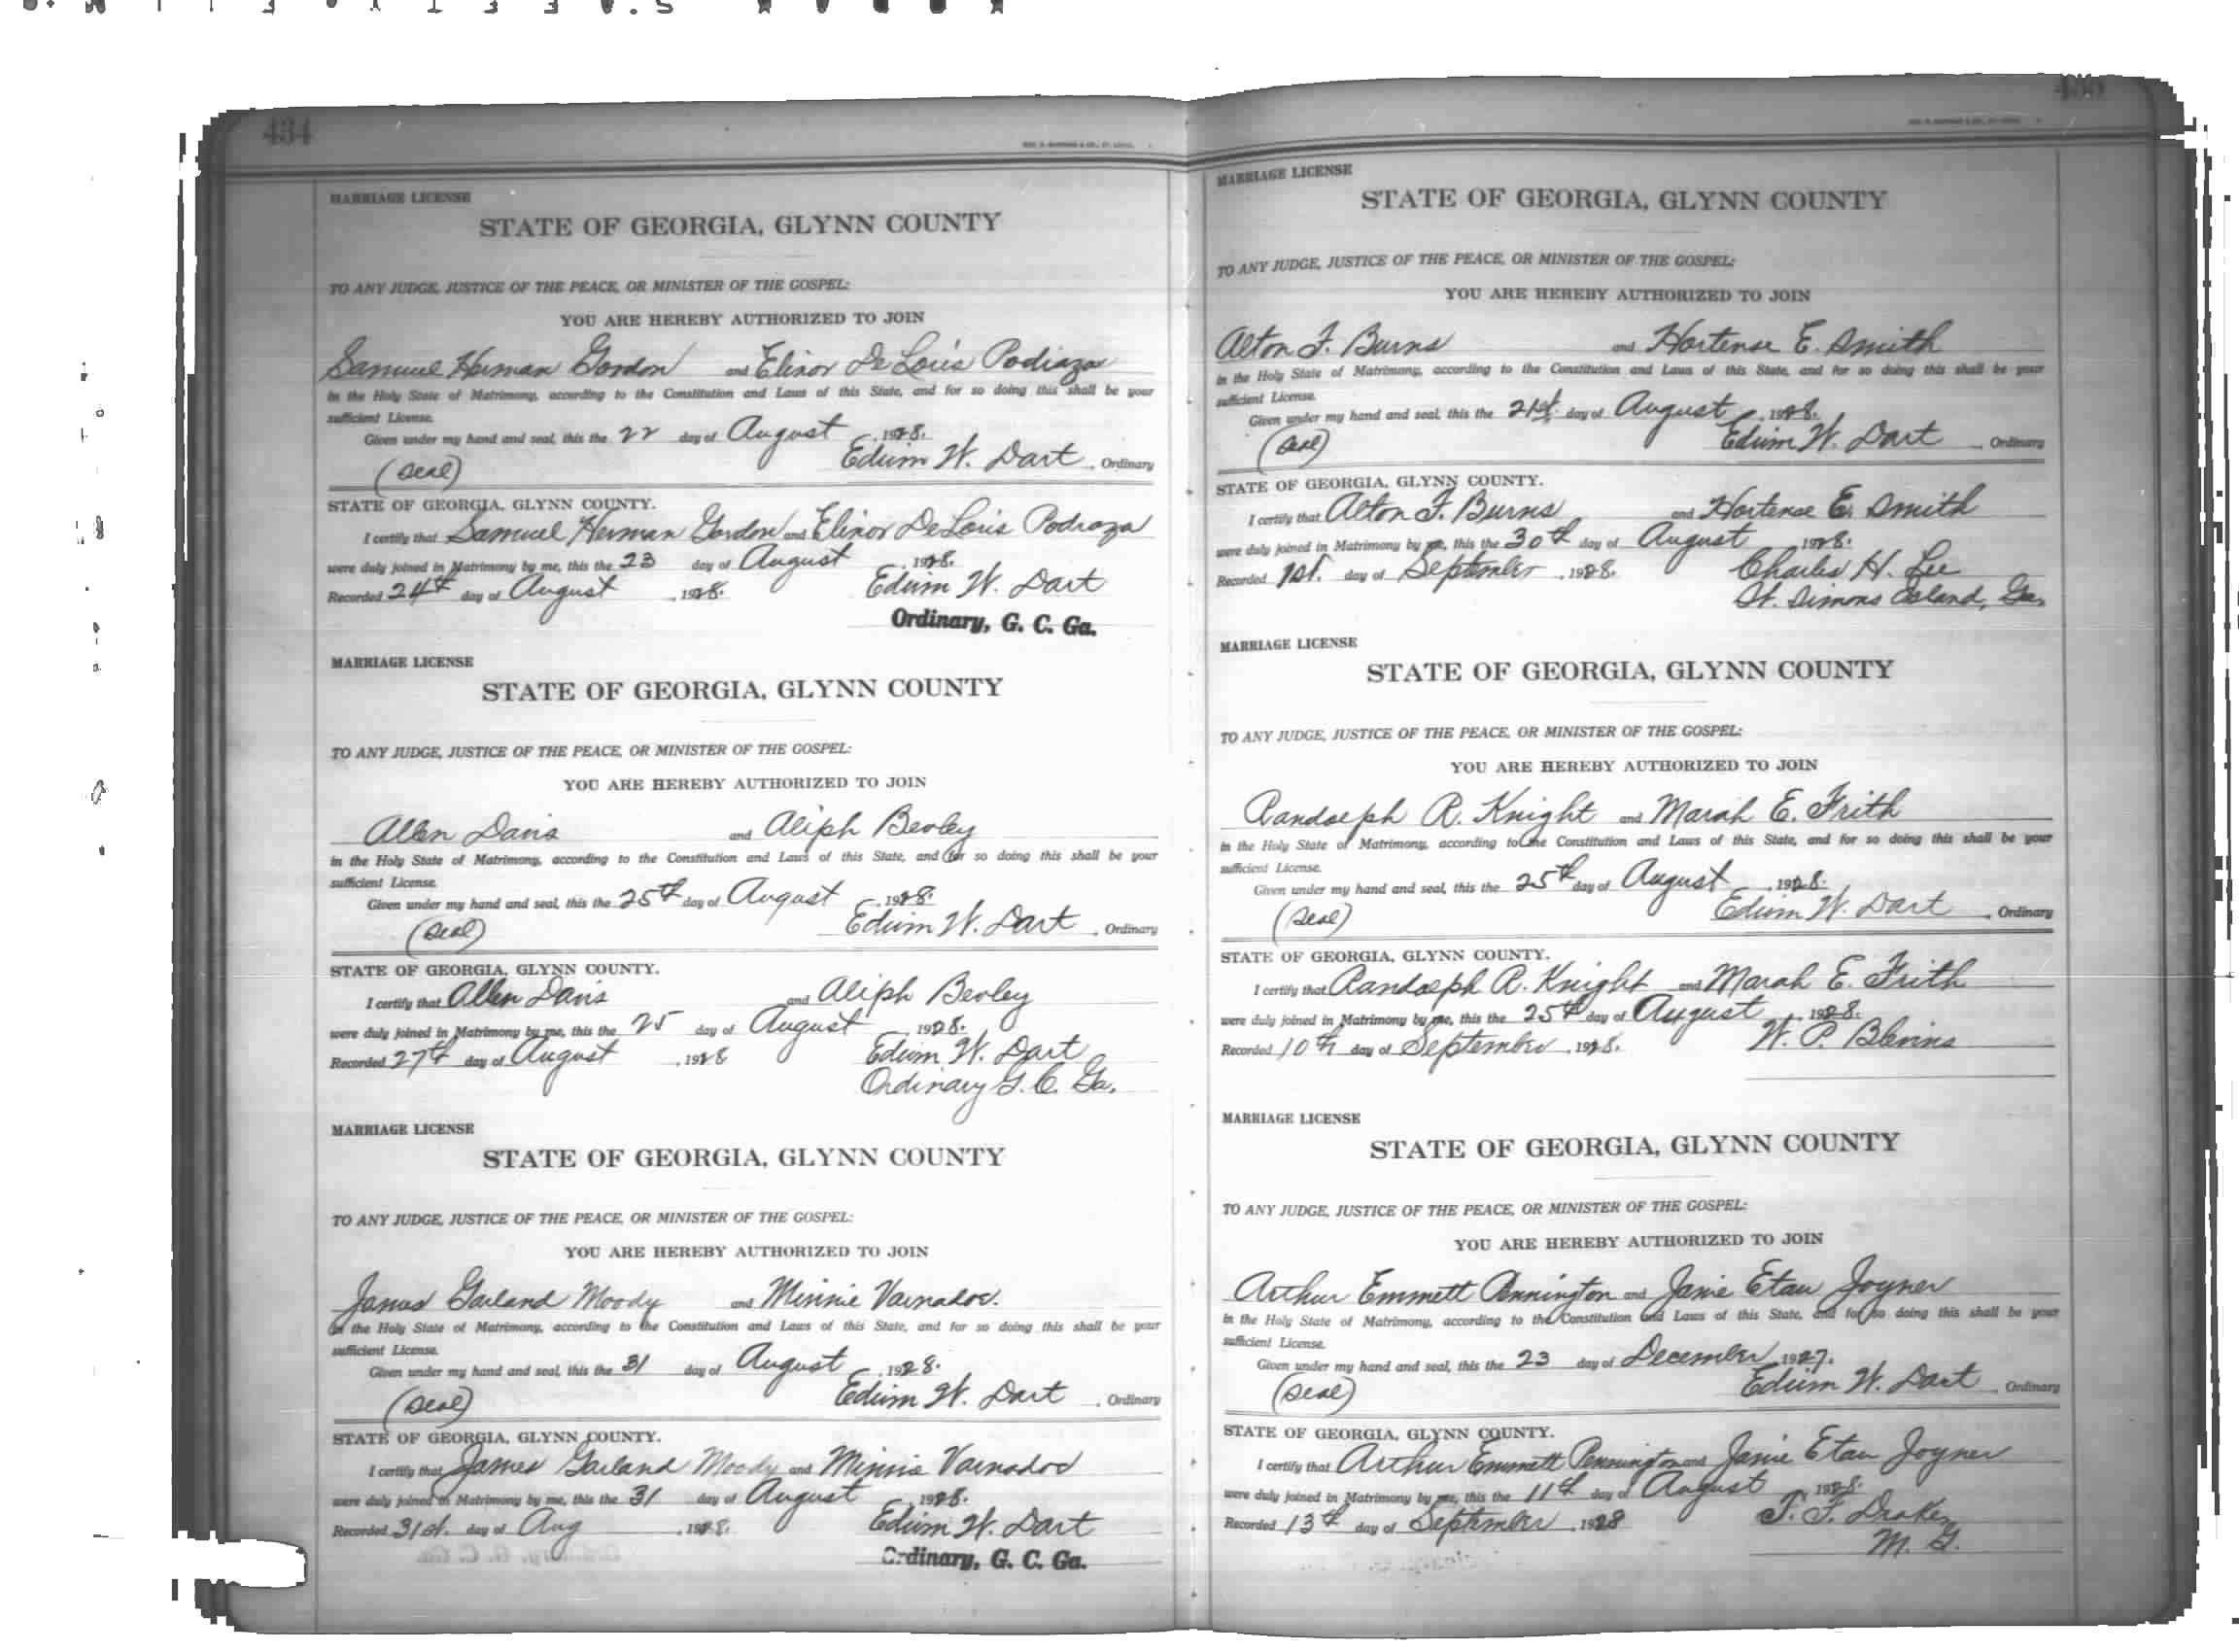 434
MARRIAGE LICENSE
STATE OF GEORGIA, GLYNN COUNTY
TO ANY JUDGE, JUSTICE OF THE PEACE, OR MINISTER OF THE GOSPEL:
YOU ARE HEREBY AUTHORIZED TO JOIN
Samuel Herman Gordon and Elinor De Loris Podiaza
in the Holy State of Matrimony, according to the Constitution and Laws of this State, and for so doing this shall be your
sufficient License.
Given under my hand and seal, this the 22 day of August, 1928.
(Seal) Edwin W. Dart, Ordinary
STATE OF GEORGIA, GLYNN COUNTY.
I certify that Samuel Herman Gordon and Elinor DeLoris Podraza
were duly joined in Matrimony by me, this the 23 day of August, 1928.
Recorded 24th day of August, 1928. Edwin W. Dart
Ordinary, G. C. Ga.
MARRIAGE LICENSE
STATE OF GEORGIA, GLYNN COUNTY
TO ANY JUDGE, JUSTICE OF THE PEACE, OR MINISTER OF THE GOSPEL:
YOU ARE HEREBY AUTHORIZED TO JOIN
Allen Davis and Aliph Beoley
in the Holy State of Matrimony, according to the Constitution and Laws of this State, and for so doing this shall be your
sufficient License.
Given under my hand and seal, this the 25th day of August, 1928.
(Seal) Edwin W. Dart, Ordinary
STATE OF GEORGIA, GLYNN COUNTY.
I certify that Allen Davis and Aliph Beoley
were duly joined in Matrimony by me, this the 25 day of August, 1928.
Recorded 27th day of August, 1928 Edwin W. Dart
Ordinary G. C. Ga.
MARRIAGE LICENSE
STATE OF GEORGIA, GLYNN COUNTY
TO ANY JUDGE, JUSTICE OF THE PEACE, OR MINISTER OF THE GOSPEL:
YOU ARE HEREBY AUTHORIZED TO JOIN
James Garland Moody and Minnie Varnadoe.
in the Holy State of Matrimony, according to the Constitution and Laws of this State, and for so doing this shall be your
sufficient License.
Given under my hand and seal, this the 31 day of August, 1928.
(Seal) Edwin W. Dart, Ordinary
STATE OF GEORGIA, GLYNN COUNTY.
I certify that James Garland Moody and Minnie Varnadoe
were duly joined in Matrimony by me, this the 31 day of August, 1928.
Recorded 31st. day of Aug, 1928. Edwin W. Dart
Ordinary, G. C. Ga.
MARRIAGE LICENSE
STATE OF GEORGIA, GLYNN COUNTY
TO ANY JUDGE, JUSTICE OF THE PEACE, OR MINISTER OF THE GOSPEL:
YOU ARE HEREBY AUTHORIZED TO JOIN
Alton F. Burns and Hortense E. Smith
in the Holy State of Matrimony, according to the Constitution and Laws of this State, and for so doing this shall be your
sufficient License.
Given under my hand and seal, this the 21st. day of August, 1928.
(Seal) Edwin W. Dart, Ordinary
STATE OF GEORGIA, GLYNN COUNTY.
I certify that Alton F. Burns and Hortense E. Smith
were duly joined in Matrimony by me, this the 30th day of August 1928.
Recorded 1st. day of September, 1928. Charles H. Lee
St. Simons Island, Ga.
MARRIAGE LICENSE
STATE OF GEORGIA, GLYNN COUNTY
TO ANY JUDGE, JUSTICE OF THE PEACE, OR MINISTER OF THE GOSPEL:
YOU ARE HEREBY AUTHORIZED TO JOIN
Randolph R. Knight and Marah E. Frith
in the Holy State of Matrimony, according to the Constitution and Laws of this State, and for so doing this shall be your
sufficient License.
Given under my hand and seal, this the 25th day of August, 1928.
(Seal) Edwin W. Dart, Ordinary
STATE OF GEORGIA, GLYNN COUNTY.
I certify that Randolph R. Knight and Marah E. Frith
were duly joined in Matrimony by me, this the 25th day of August, 1928.
Recorded 10th day of September, 1928. W. P. Blevins
MARRIAGE LICENSE
STATE OF GEORGIA, GLYNN COUNTY
TO ANY JUDGE, JUSTICE OF THE PEACE, OR MINISTER OF THE GOSPEL:
YOU ARE HEREBY AUTHORIZED TO JOIN
Arthur Emmett Pennington and Janie Etau Joyner
in the Holy State of Matrimony, according to the Constitution and Laws of this State, and for so doing this shall be your
sufficient License.
Given under my hand and seal, this the 23 day of December, 1927.
(Seal) Edwin W. Dart, Ordinary
STATE OF GEORGIA, GLYNN COUNTY.
I certify that Arthur Emmett Pennington and Janie Etau Joyner
were duly joined in Matrimony by me, this the 11th day of August, 1928.
Recorded 13th day of September, 1928 F. F. Drake
M. G.